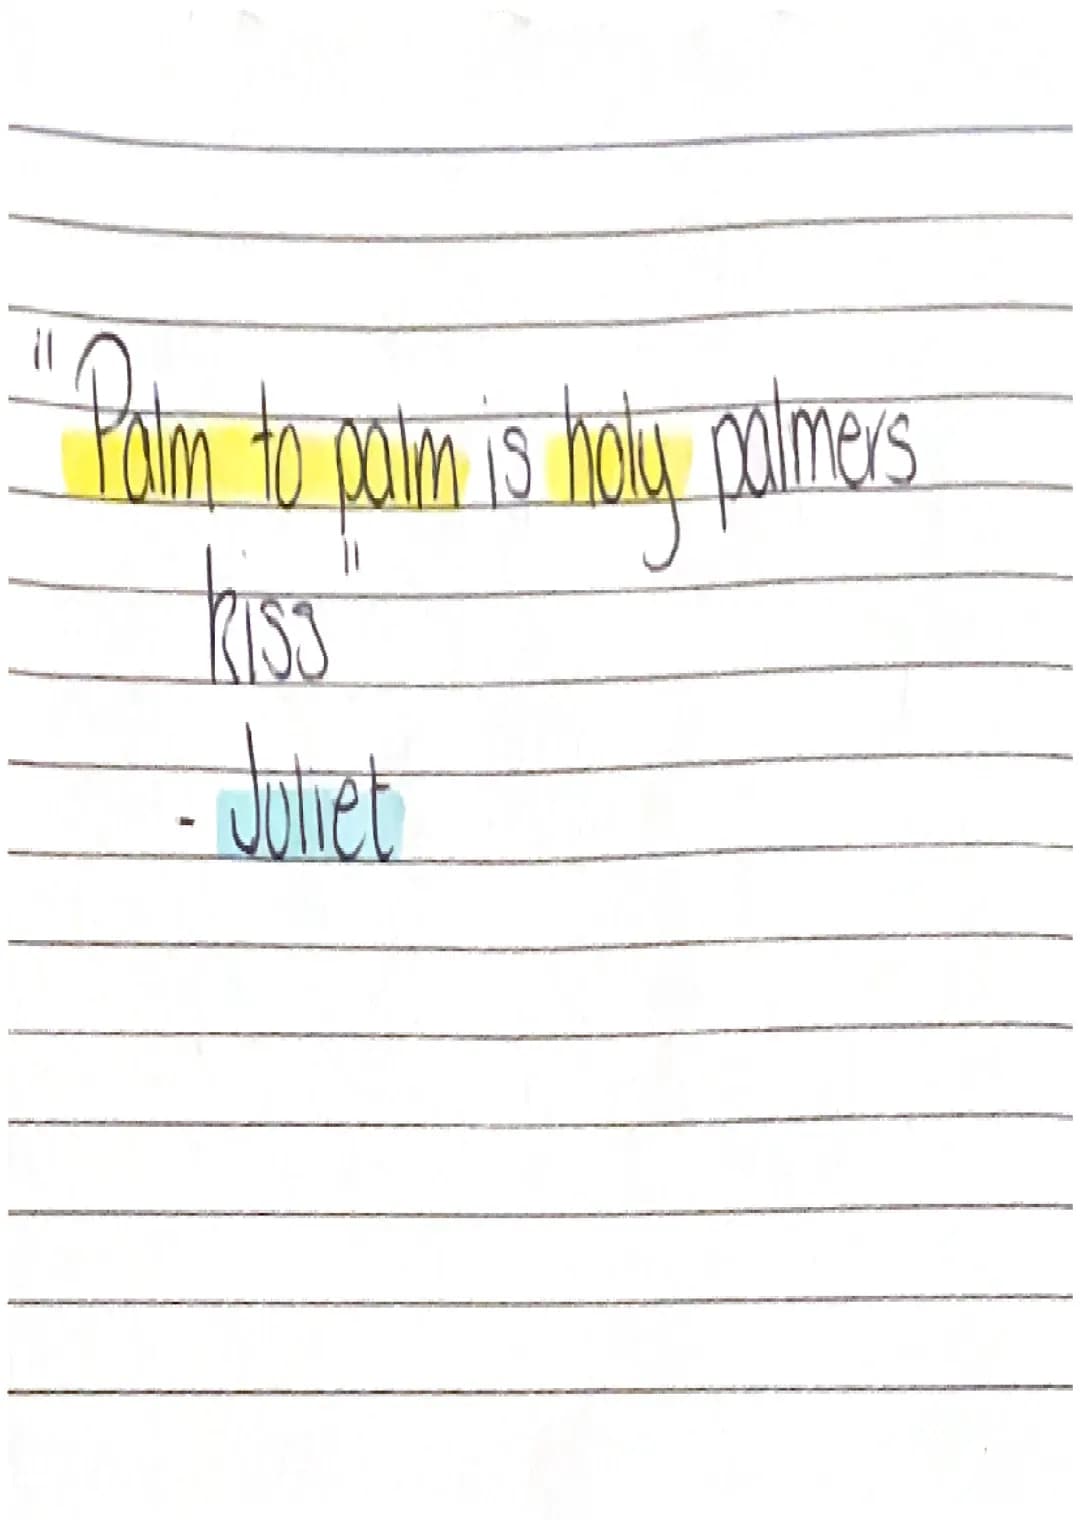 "Palm to palm is holy palmers
kiss"
- Juliet